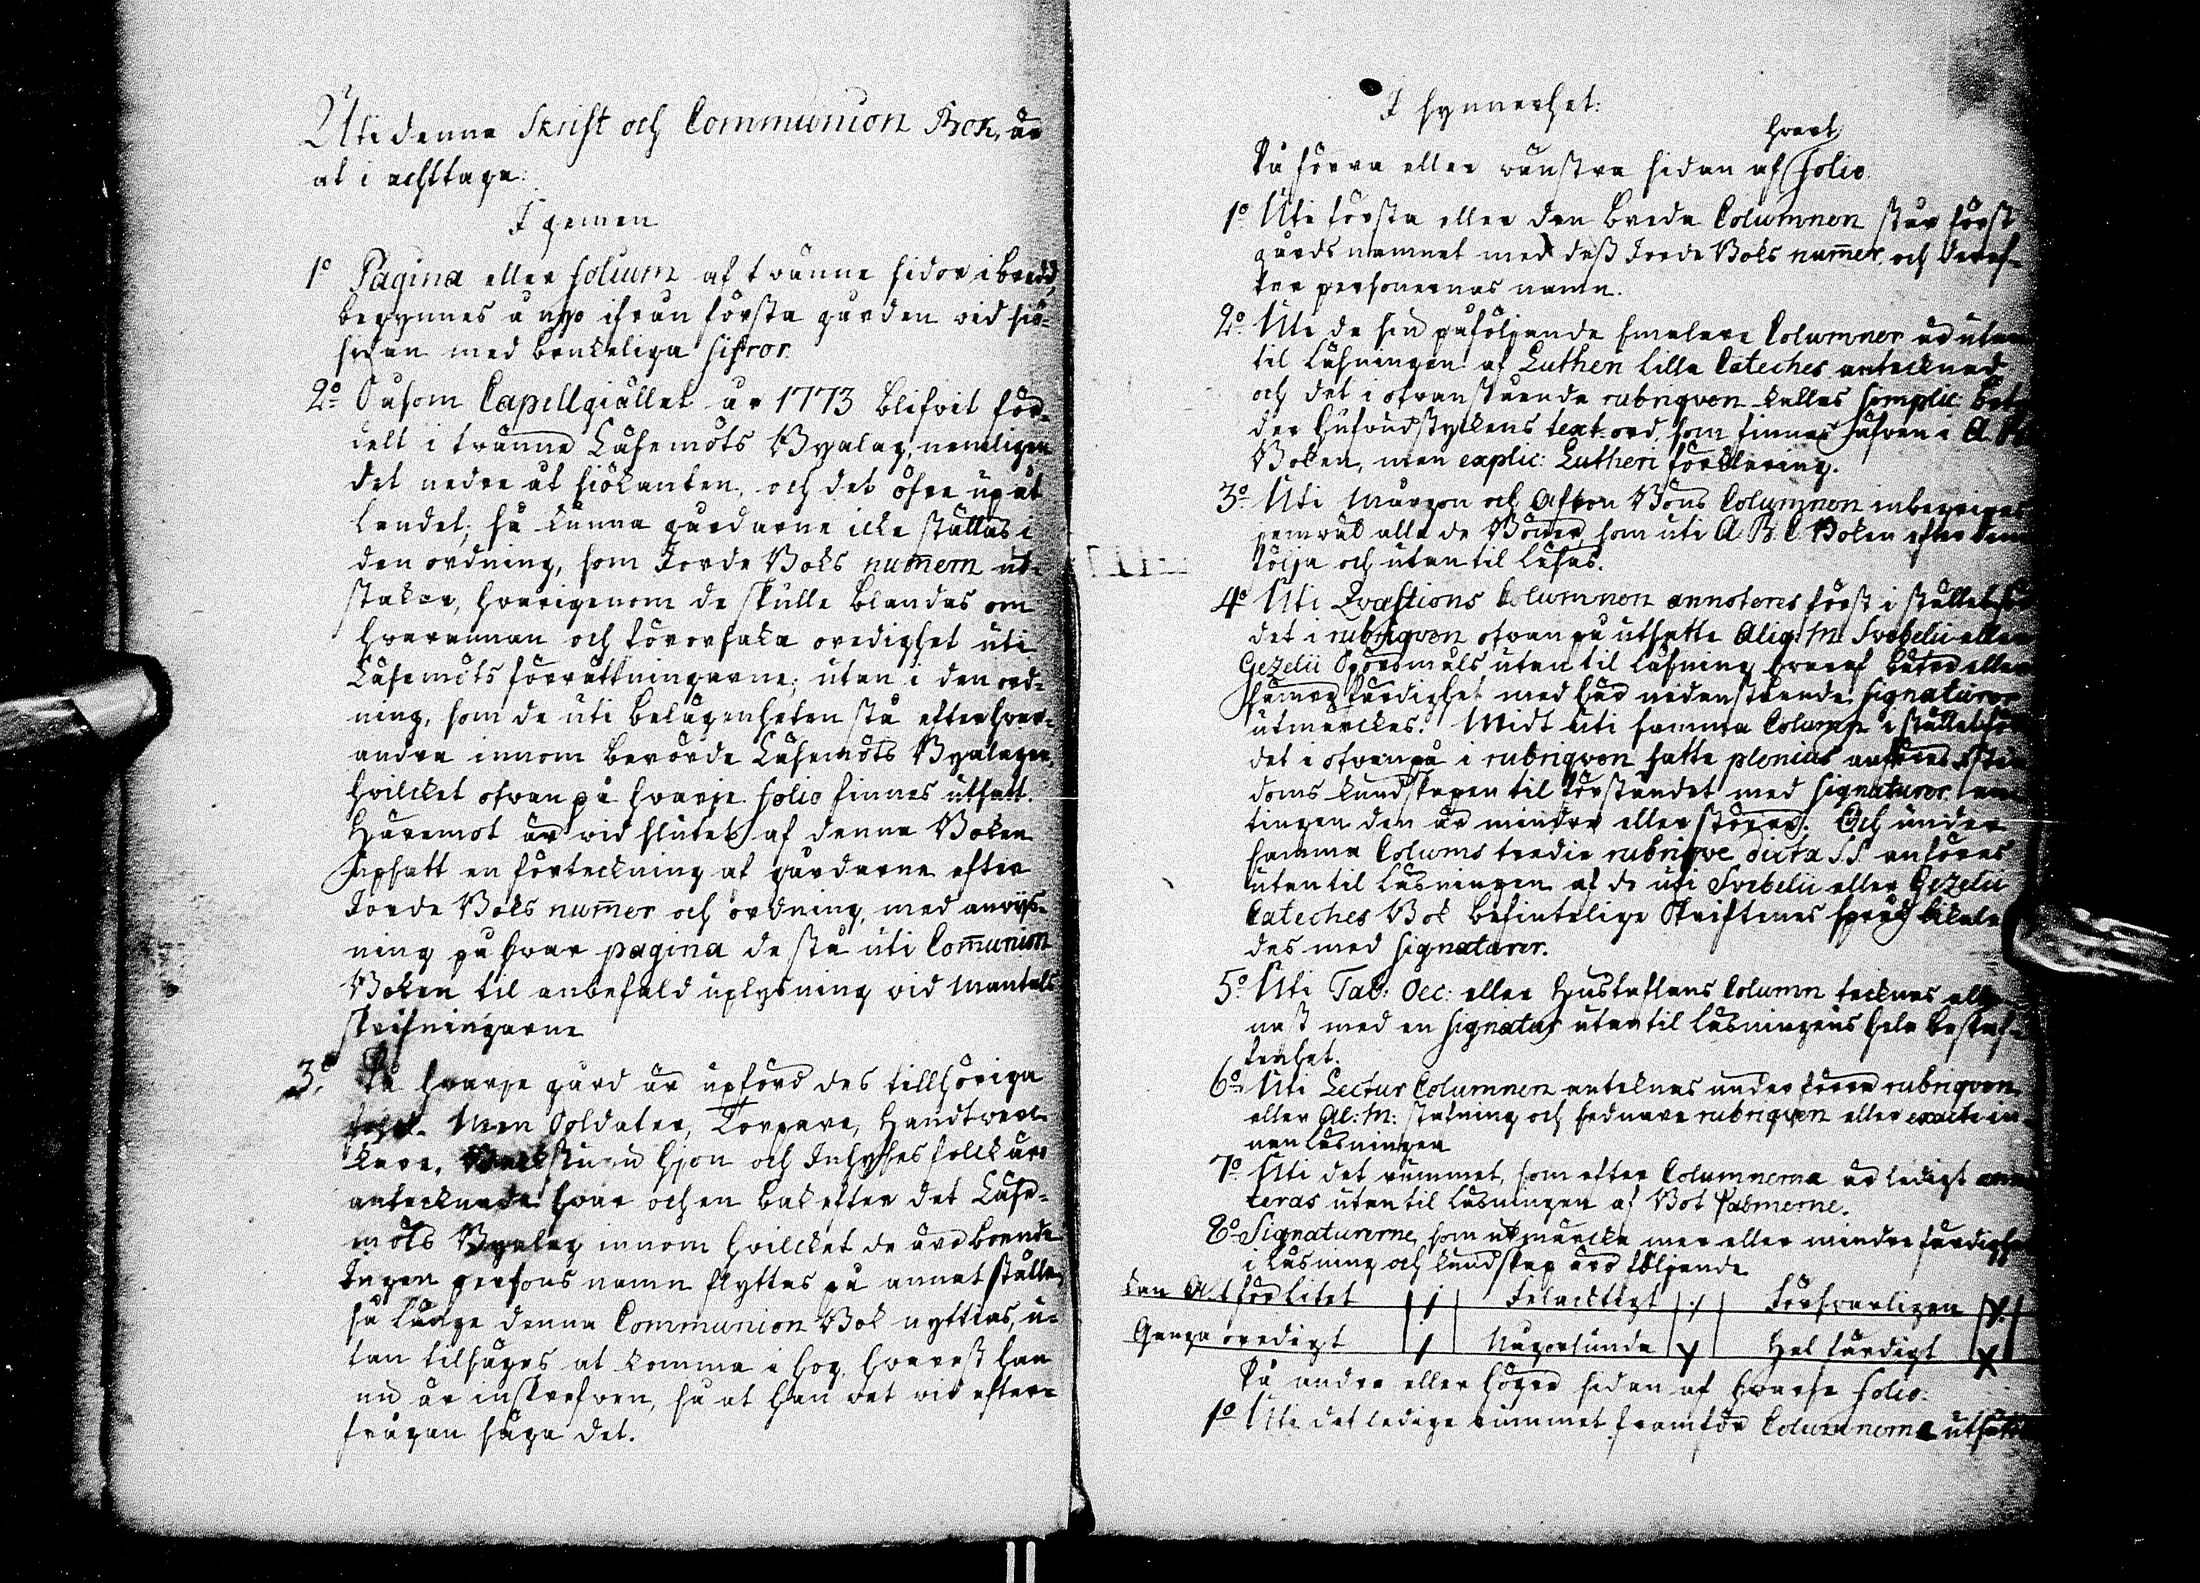 Uti denna Skrift och Communion Bok, är
at i achttaga:
I gemen
1o Pagina eller folium af tvänne sidor i bredd,
begynnes å nyo ifrån första gården vid siö-
sidan med brukeliga siffror.
2o Såsom Capellgiället år 1773 blifvit för-
delt i tvänne Läsemöts Byalag, nemligen
det nedre åt siökanten, och det öfre up åt
landet; så kunna gårdarne icke ställas i
den ordning, som Jorde Boks numern ut-
stakar, hvarigenom de skulle blandas om
hvarannan och förorsaka oredighet uti
Läsemöts förrättningarne; utan i den ord-
ning, som de uti belägenheten stå efter hvar-
andra innom berörde Läsemöts Byalagen,
hvilcket ofvan på hvarje folio finnes utsatt.
Häremot är vid slutet af denna Boken
upsatt en förteckning af gårdarne efter
Jorde Boks numer och ordning, med anvijs-
ning på hvar pagina de stå uti Communion
Boken til anbefald uplysning vid Mantals
skrifningarne
3o På hvarje gård är upförd des tillhöriga
folck. Men Soldater, Torpare, Handtverc-
kare, Backstugu hjon och Inhyses folck äro
antecknade hvar och en bak efter det Läse-
möts Byalag innom hvilcket de äro boende
Ingen persons namn flyttas på annat ställe,
så länge denna Communion Bok nyttias, u-
tan tilsäges at komma i hog, hvarest han
nu är inskrefven, så at han vet vid efter-
frågan säga det.
I synnerhet:
hvart
På förra eller vänstra sidan af folio
1o Uti första eller den breda Columnen står först
gårds namnet med dess Jorde Boks numer, och deref-
ter personernas namn.
2o Uti de sen påföljande smalare Columner är utan
til läsningen af Lutheri lilla Cateches antecknad
och det i ofvanstående rubriqven kallas simplic: bety-
der hufvudstyckens text ord, som finnes häfven i A. B.
Boken, men explic: Lutheri förklaring.
3o Uti Morgon och Afton Böns Columnen inbegripes
jemväl alla de Böner, som uti A B C Boken efter dem
följa och utan til läsas.
4o Uti Qvæstions Columnen annoteres först i stället för
det i rubriqven ofvan på utsatte Aliq: M: Svebelii eller
Gezelii Spörsmåls utan til läsning hvaraf bätre eller
sämre färdighet med här nedanstående signaturer
utmerckes. Midt uti samma Column i stället för
det i ofvanpå i rubriqven satte plenius antecknes
doms kundskapen til förståndet med signaturer, an-
tingen den är mindre eller större. Och under
samma Colums tredie rubriqve dicta SS anföres
utan til läsningen af de uti Svebelii eller Gezelii
Cateches Bok befintelige Skriftenes språk
des med signaturer.
5o Uti Tab: Oec: eller Hustaflans Column tecknes alle-
nast med en signatur utan til läsningens hela beskaf-
fenhet.
6o Uti Lectur Columnen antecknas under förra rubriqven
eller Al: M: stafning och sednare rubriqven eller exacte in-
nan läsningen
7o Uti det rummet, som efter Columnerna är ledigt anno-
teras utan til läsningen af Bot Psalmerne.
8o Signaturerne, som utmärcka mer eller mindre färdighet
i läsning och kundskap äro följande
Kan Alt för litet / Felacktigt ./ Försvarligen Y.
Ganska oredigt / Någorlunda Y Hel färdigt X
På andra eller höger sidan af hvarje folio:
1o Uti det ledige rummet framför Columnerna utsättes